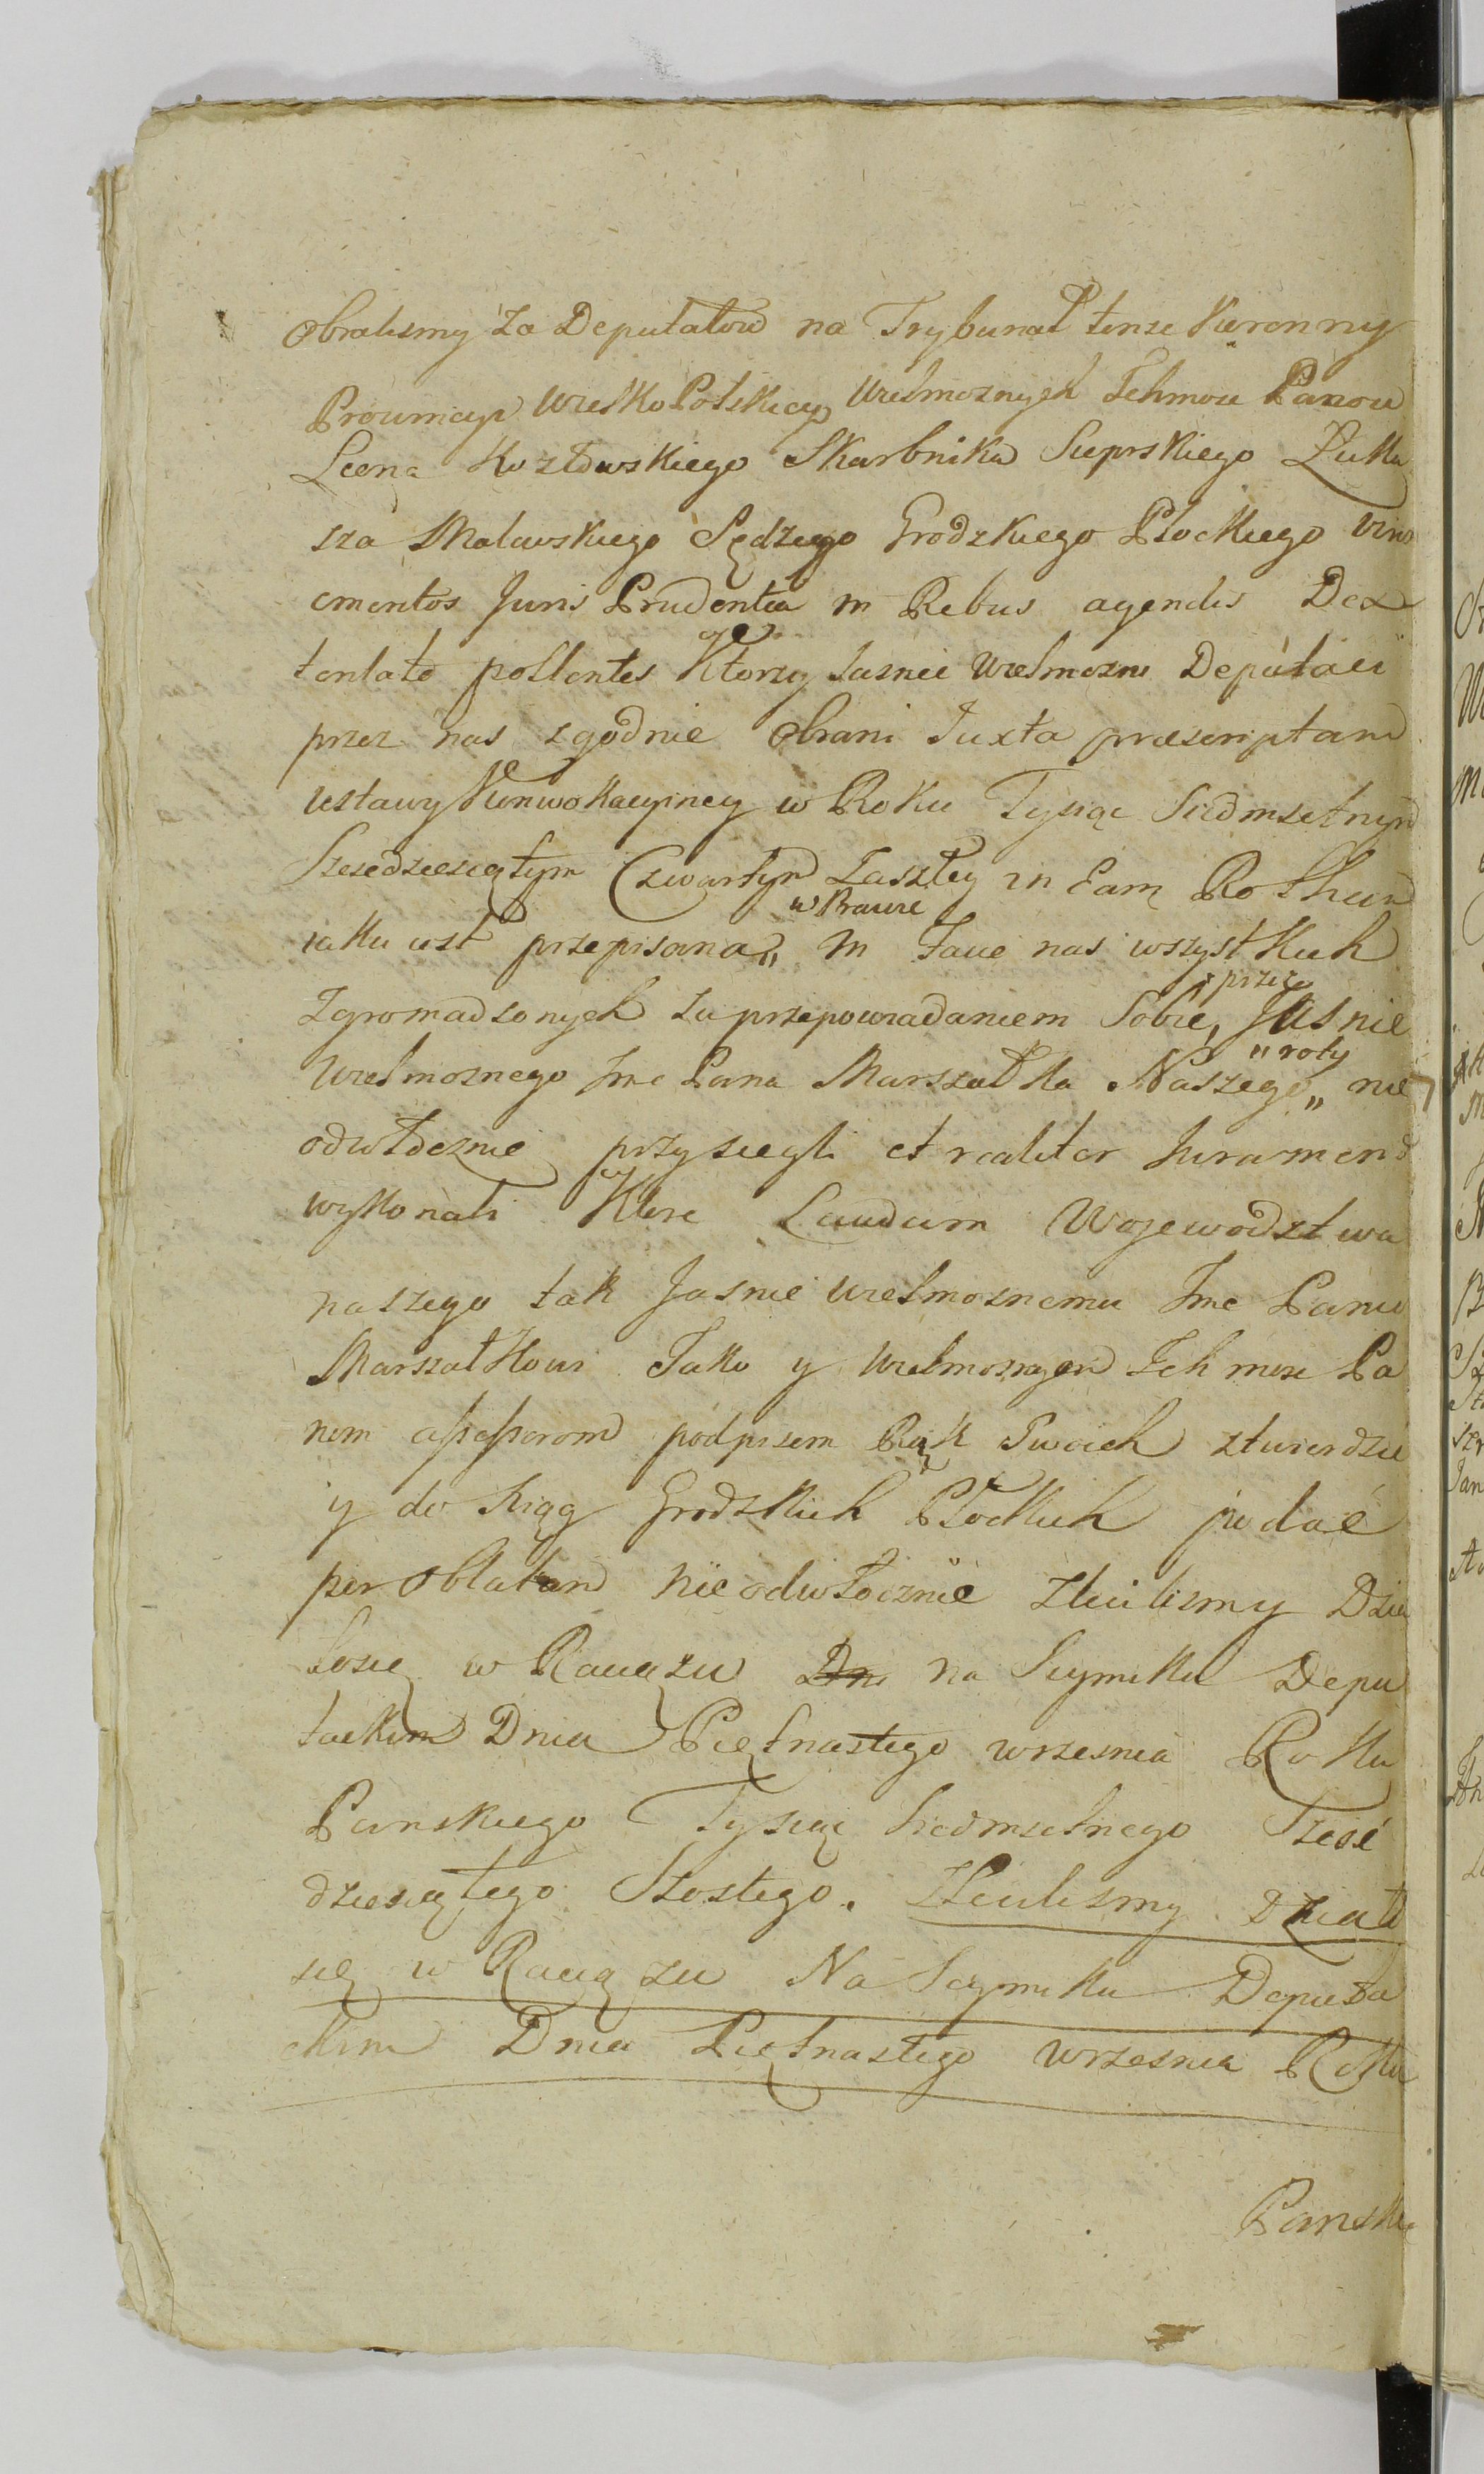 obralismy za Deputatow na Trybunał tenze Koronny
Prowincyi WielkoPolskiey Wielmoznych Ichmosc Panow
Leona Kozłowskiego Skarbnika Sieprskiego Łuka
sza Malewskiego Sędziego Grodzkiego Płockiego viros
ementos Juris Prudentia in Rebus agendis Dex
teritate pollentes Ktorzy Jasnie Wielmozni Deputaci
przez nas zgodnie obrani Juxta præscriptam
ustawy Konwokacyiney w Roku Tysiąc Siedmsetnym
Szescdziesiątym Czwartym Zaszłey in Eam Rotham
iaka iest w Prawie przepisana„ in facie nas wszystkich
Zgromadzonych za przepowiadaniem Sobie, przez Jasnie
Wielmoznego Jmc Pana Marszałka Naszego„ „roty nie
odwłocznie przysiegli et realiter Jurament
wykonali Ktore Laudum Wojewodztwa
naszego tak Jasnie Wielmoznemu Jmc Panu
Marszałkowi Jako y Wielmoznym Ichmosc Pa
nom assessorom podpisem Rąk Swoich ztwierdzic
y do Xiąg Grodzkich Płockich podać
per oblatam nieodwłocznie zlecilismy Dzia
łosię w Raciązu Dn na Seymiku Depu
tackim Dnia Piętnastego wrzesnia Roku
Panskiego Tysiąc Siedmsetnego Szesć
dziesiątego Szostego. Zlecilismy Działo
się w Raciązu Na Seymiku Deputa
ckim Dnia Piętnastego wrzesnia Roku
Panskie